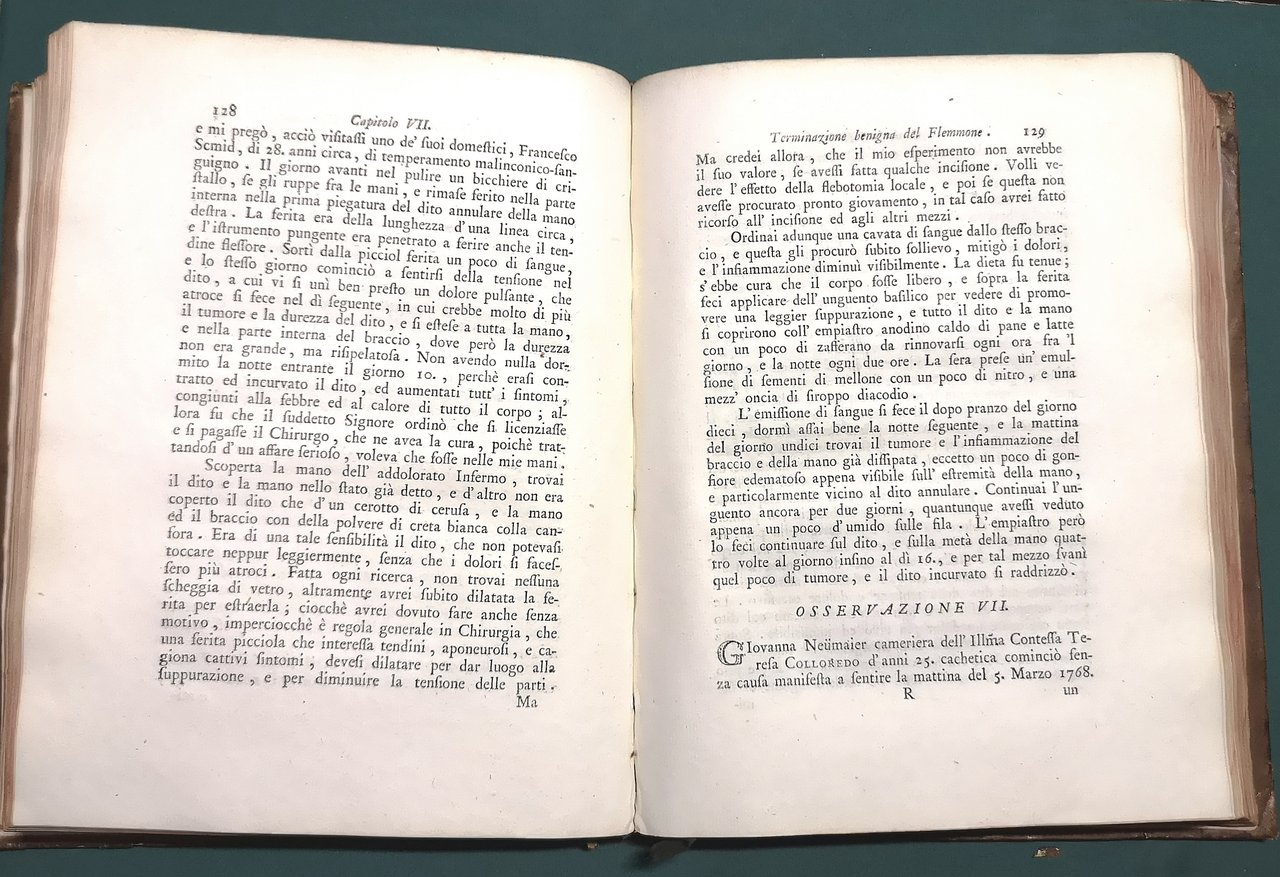 128
Capitolo VII.
e mi pregò, acciò viſitaſſi uno de' ſuoi domeſtici, Franceſco
Scmid, di 28. anni circa, di temperamento malinconico-ſan-
guigno. Il giorno avanti nel pulire un bicchiere di cri-
ſtallo, ſe gli ruppe fra le mani, e rimaſe ferito nella parte
interna nella prima piegatura del dito annulare della mano
deſtra. La ferita era della lunghezza d'una linea circa,
e l'iſtrumento pungente era penetrato a ferire anche il ten-
dine fleſſore. Sortì dalla picciol ferita un poco di ſangue,
e lo ſteſſo giorno cominciò a ſentirſi della tenſione nel
dito, a cui vi ſi unì ben preſto un dolore pulſante, che
atroce ſi fece nel dì ſeguente, in cui crebbe molto di più
il tumore e la durezza del dito, e ſi eſteſe a tutta la mano,
e nella parte interna del braccio, dove però la durezza
non era grande, ma riſipelatoſa. Non avendo nulla dor-
mito la notte entrante il giorno 10., perchè eraſi con-
tratto ed incurvato il dito, ed aumentati tutt' i ſintomi,
congiunti alla febbre ed al calore di tutto il corpo; al-
lora fu che il ſuddetto Signore ordinò che ſi licenziaſſe
e ſi pagaſſe il Chirurgo, che ne avea la cura, poichè trat-
tandoſi d'un affare ſerioſo, voleva che foſſe nelle mie mani.
Scoperta la mano dell' addolorato Infermo, trovai
il dito e la mano nello ſtato già detto, e d'altro non era
coperto il dito che d'un cerotto di ceruſa, e la mano
ed il braccio con della polvere di creta bianca colla can-
fora. Era di una tale ſenſibilità il dito, che non potevaſi
toccare neppur leggiermente, ſenza che i dolori ſi faceſ-
ſero più atroci. Fatta ogni ricerca, non trovai neſſuna
ſcheggia di vetro, altramente avrei ſubito dilatata la fe-
rita per eſtraerla; ciocchè avrei dovuto fare anche ſenza
motivo, imperciocchè è regola generale in Chirurgia, che
una ferita picciola che intereſſa tendini, aponeuroſi, e ca-
giona cattivi ſintomi, deveſi dilatare per dar luogo alla
ſuppurazione, e per diminuire la tenſione delle parti.
Ma
Terminazione benigna del Flemmone.
129
Ma credei allora, che il mio eſperimento non avrebbe
il ſuo valore, ſe aveſſi fatta qualche inciſione. Volli ve-
dere l'effetto della flebotomia locale, e poi ſe queſta non
aveſſe procurato pronto giovamento, in tal caſo avrei fatto
ricorſo all' inciſione ed agli altri mezzi.
Ordinai adunque una cavata di ſangue dallo ſteſſo brac-
cio, e queſta gli procurò ſubito ſollievo, mitigò i dolori,
e l'infiammazione diminuì viſibilmente. La dieta fu tenue;
s'ebbe cura che il corpo foſſe libero, e ſopra la ferita
feci applicare dell' unguento baſilico per vedere di promo-
vere una leggier ſuppurazione, e tutto il dito e la mano
ſi coprirono coll' empiaſtro anodino caldo di pane e latte
con un poco di zafferano da rinnovarſi ogni ora fra 'l
giorno, e la notte ogni due ore. La ſera preſe un' emul-
ſione di ſementi di mellone con un poco di nitro, e una
mezz' oncia di ſiroppo diacodio.
L'emiſſione di ſangue ſi fece il dopo pranzo del giorno
dieci, dormì aſſai bene la notte ſeguente, e la mattina
del giorno undici trovai il tumore e l'infiammazione del
braccio e della mano già diſſipata, eccetto un poco di gon-
fiore edematoſo appena viſibile ſull' eſtremità della mano,
e particolarmente vicino al dito annulare. Continuai l'un-
guento ancora per due giorni, quantunque aveſſi veduto
appena un poco d'umido ſulle fila. L'empiaſtro però
lo feci continuare ſul dito, e ſulla metà della mano quat-
tro volte al giorno inſino al dì 16., e per tal mezzo ſvanì
quel poco di tumore, e il dito incurvato ſi raddrizzò.
OSSERVAZIONE VII.
GIovanna Neümaier cameriera dell' Illm̃a Conteſſa Te-
reſa COLLOREDO d'anni 25. cachetica cominciò ſen-
za cauſa manifeſta a ſentire la mattina del 5. Marzo 1768.
R
un